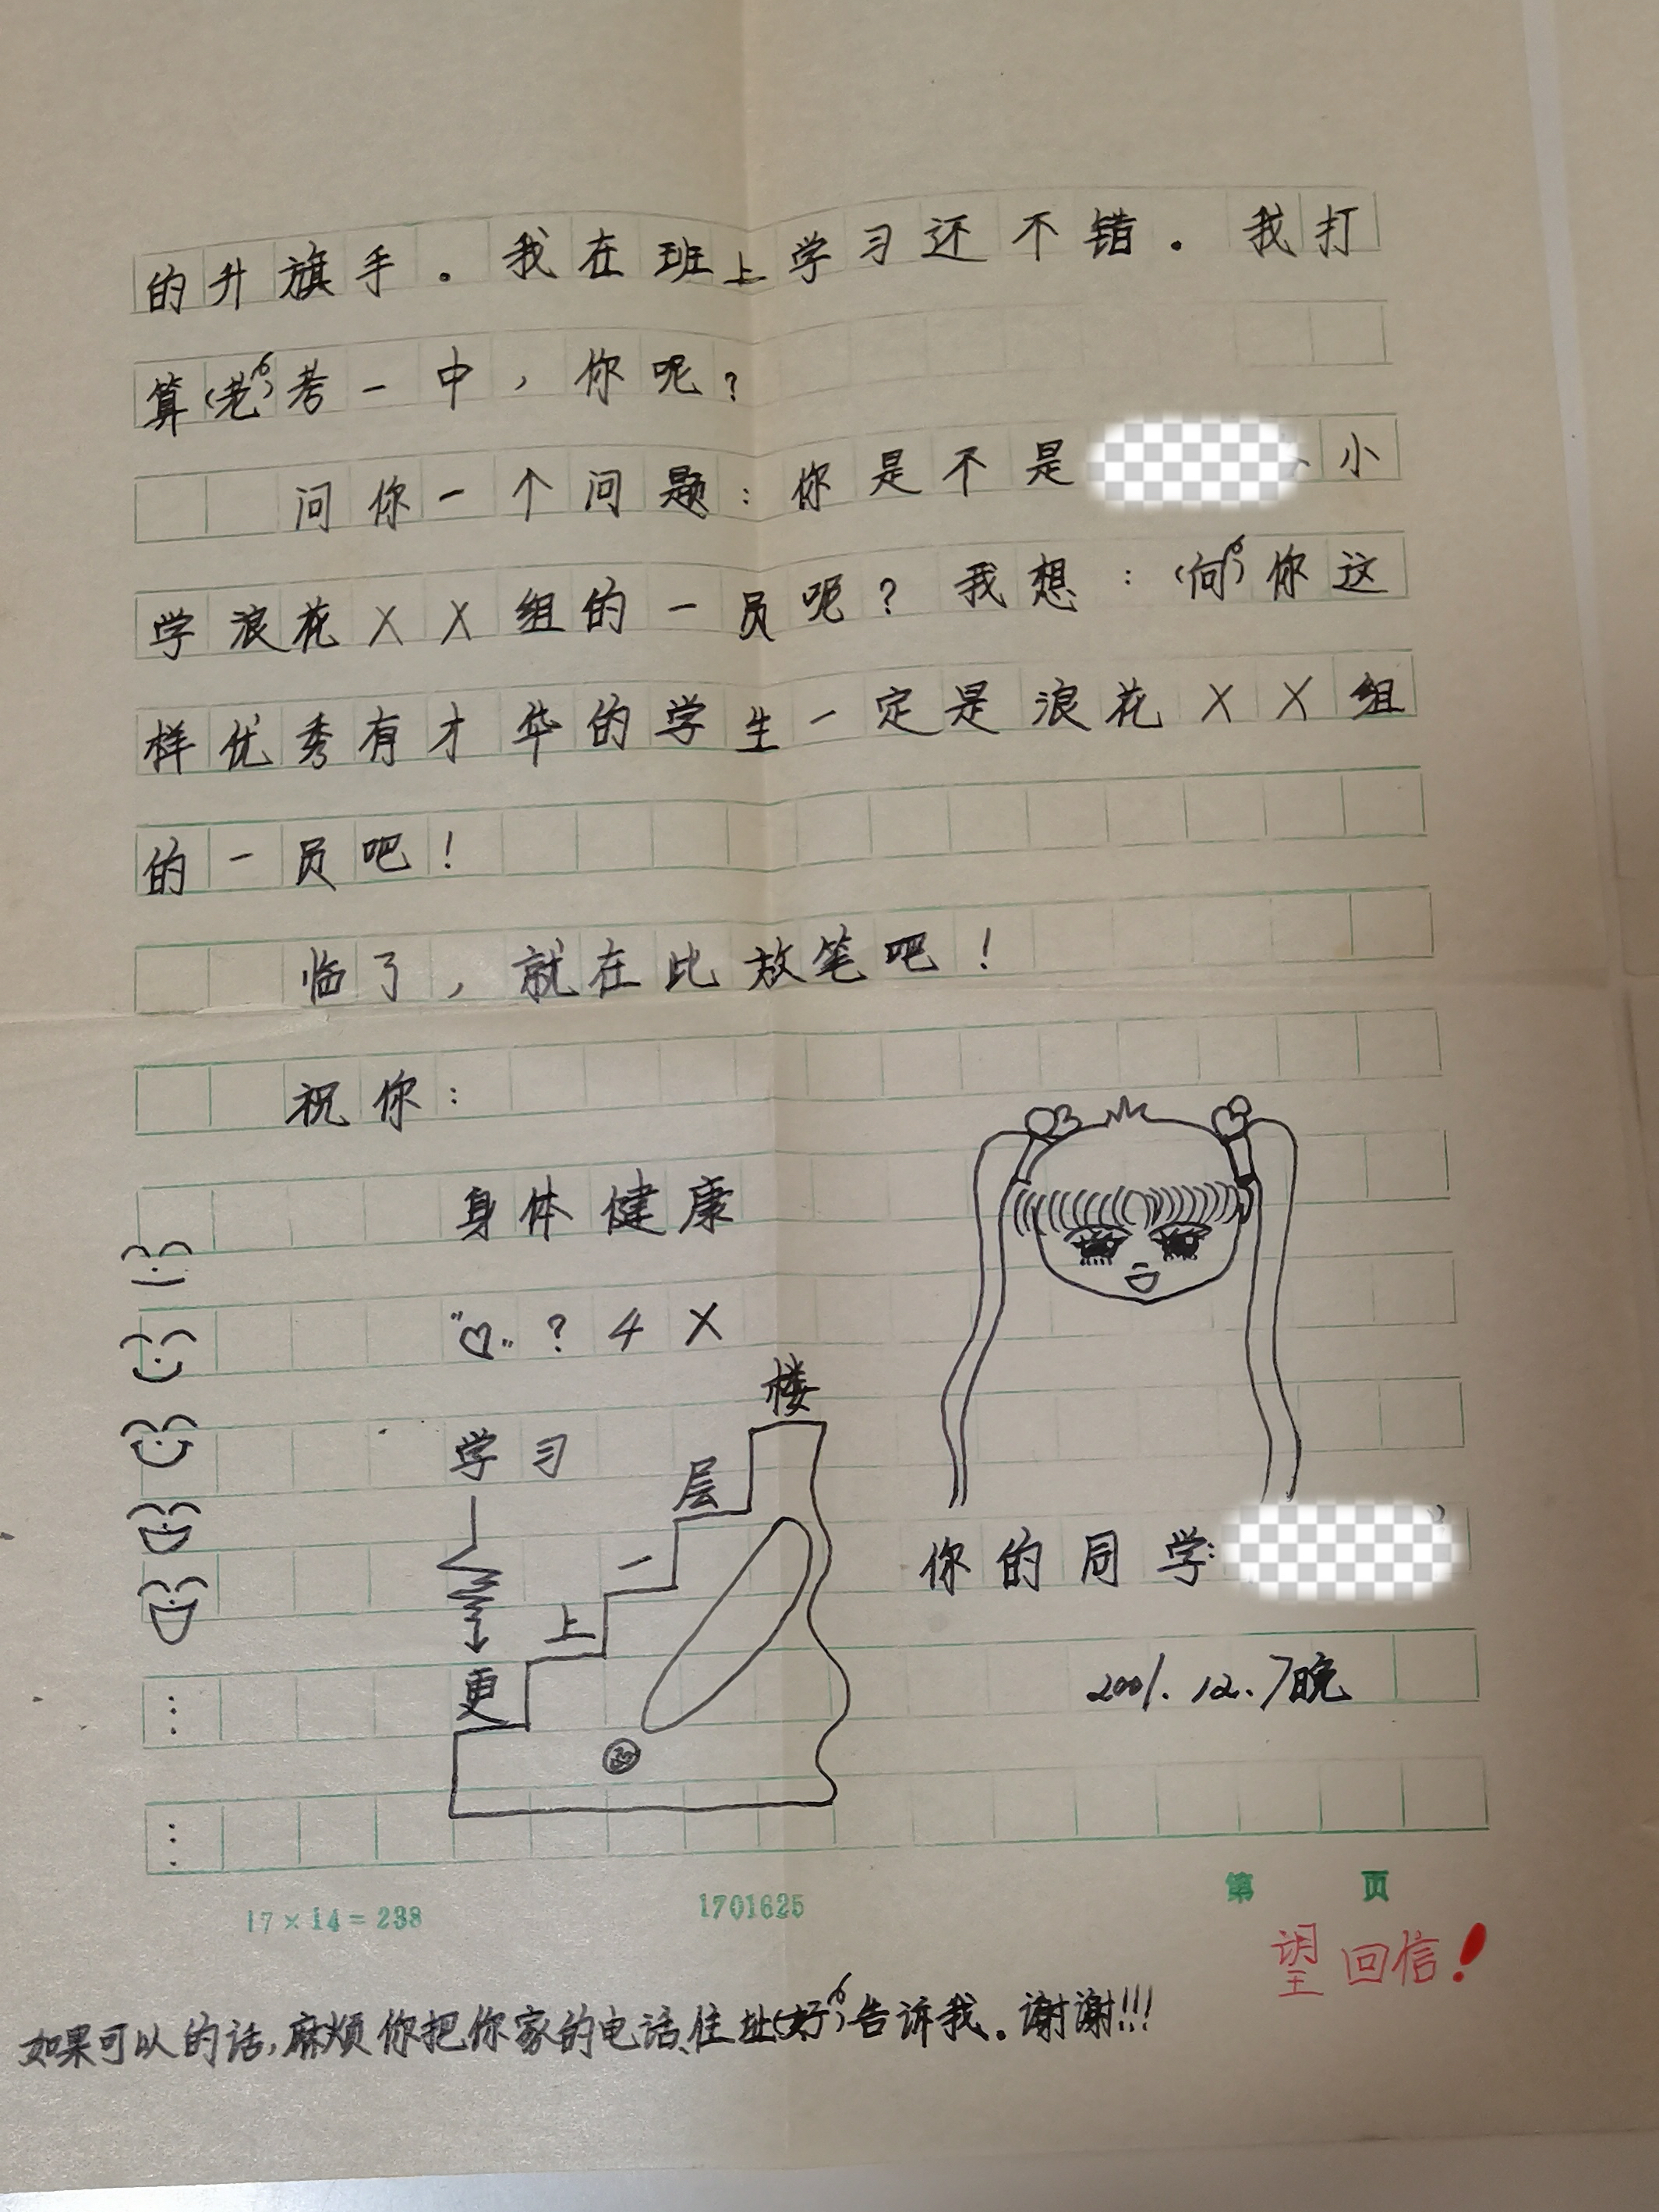 的升旗手。我在班上学习还不错。我打
算(老)考一中，你呢？
问你一个问题：你是不是
小
学浪花XX组的一员呢？我想：(向)你这
样优秀有才华的学生一定是浪花XX组
的一员吧！
临了，就在比放笔吧！
祝你：
身体健康
"♡" ? 4 X
学习
更
上
一
层
楼
你的同学:
2001.12.7晚
17×14=238
1701625
第 页
望回信！
如果可以的话,麻烦你把你家的电话、住址(好)告诉我。谢谢!!!